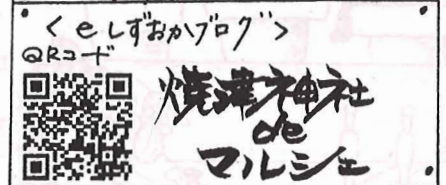 <eしずおかブログ>
QRコード
焼津神社
de
マルシェ